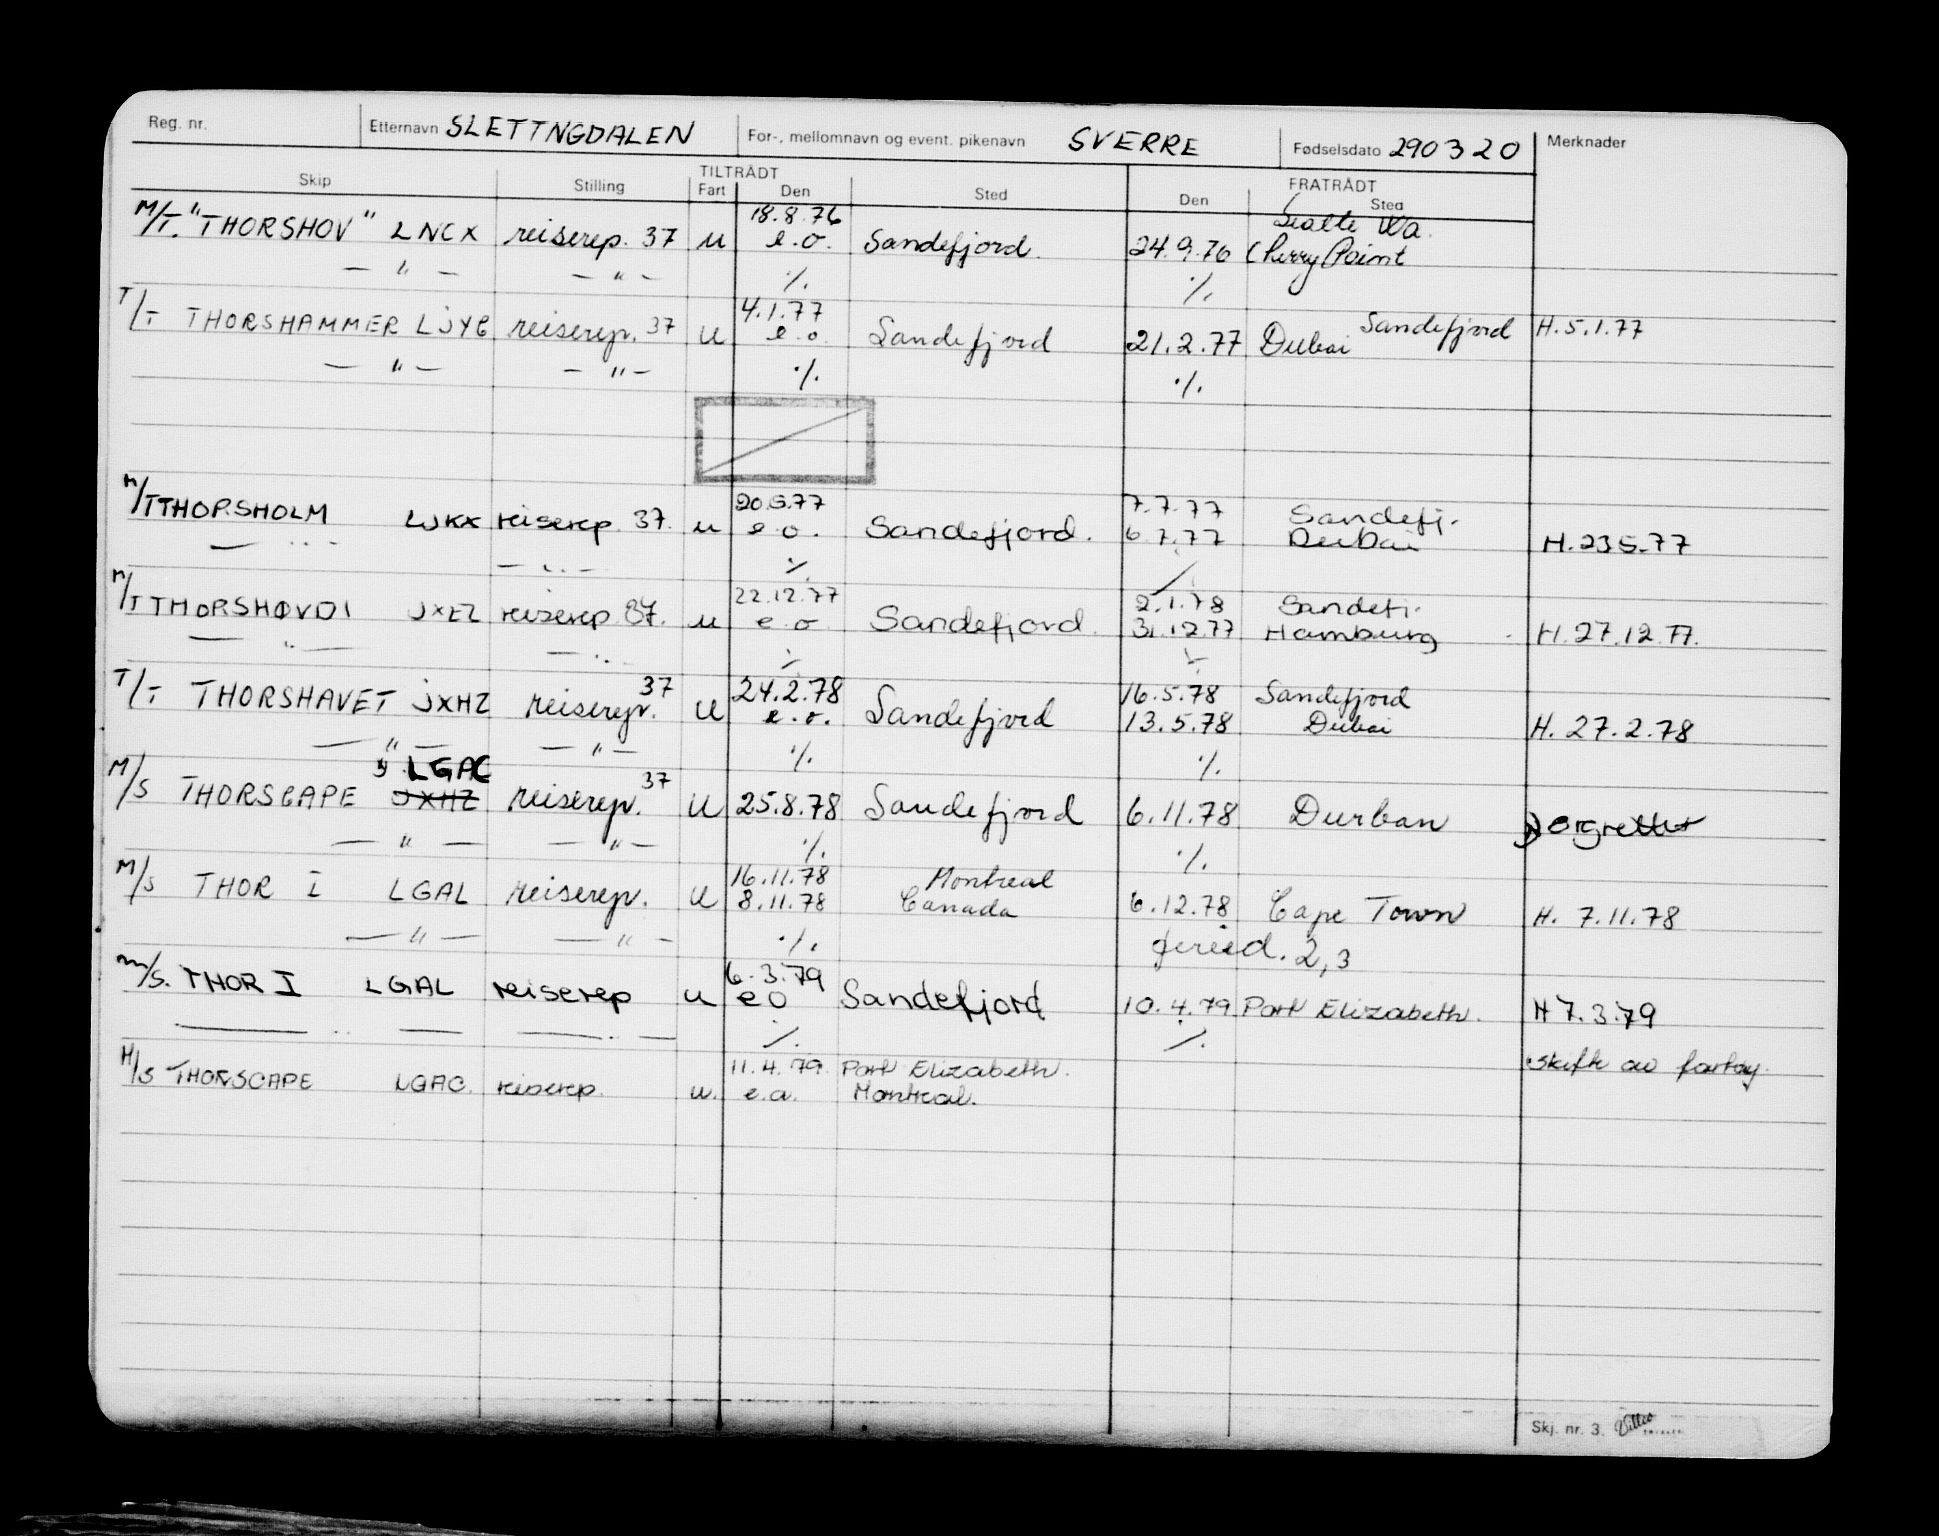 Reg. nr. Etternavn SLETTNGDALEN For-, mellomnavn og event. pikenavn SVERRE Fødselsdato 290320 Merknader
TILTRÅDT FRATRÅDT
Skip Stilling Fart Den Sted Den Sted
18.8.76 Sealte Wa.
M/T. "THORSHOV" LNCX reiserep. 37 u e.o. Sandefjord. 24.9.76 Cherry Point
— " — — " — ·/. ·/.
4.1.77 Sandefjord
T/T THORSHAMMER LJYG reiserep. 37 u e.o. Sandefjord 21.2.77 Dubai H. 5.1.77
— " — — " — ·/. ·/.
20.5.77 7.7.77 Sandefj.
M/T THORSHOLM LJKX reiserep 37. u e.o. Sandefjord. 6.7.77 Dubai H. 23 5.77
— " — — " — ·/. ·/.
22.12.77 2.1.78 Sandefj.
M/T THORSHØVDI JXEZ reiserep 37. u e.o Sandefjord. 31.12.77 Hamburg H. 27.12.77.
— " — — " — ·/. ·/.
24.2.78 16.5.78 Sandefjord
T/T THORSHAVET JXHZ reiserep. 37 u e.o. Sandefjord 13.5.78 Dubai H. 27.2.78
— " — — " — ·/. ·/.
LGAC
M/S THORSCAPE JXHZ reiserep. 37 u 25.8.78 Sandefjord 6.11.78 Durban
— " — — " — ·/. ·/.
16.11.78 Montreal
M/S THOR I LGAL reiserep. u 8.11.78 Canada 6.12.78 Cape Town H. 7.11.78
— " — — " — ·/. 2,3
6.3.79
M/S. THOR I LGAL reiserep u eo Sandefjord 10.4.79 Port Elizabeth. H 7.3.79
— " — — " — ·/. ·/.
11.4.79. Port Elizabeth. skifte av fartøy.
M/S THORSCAPE LGAC. reiserep. u. e.a. Montreal.
Skj. nr. 3.